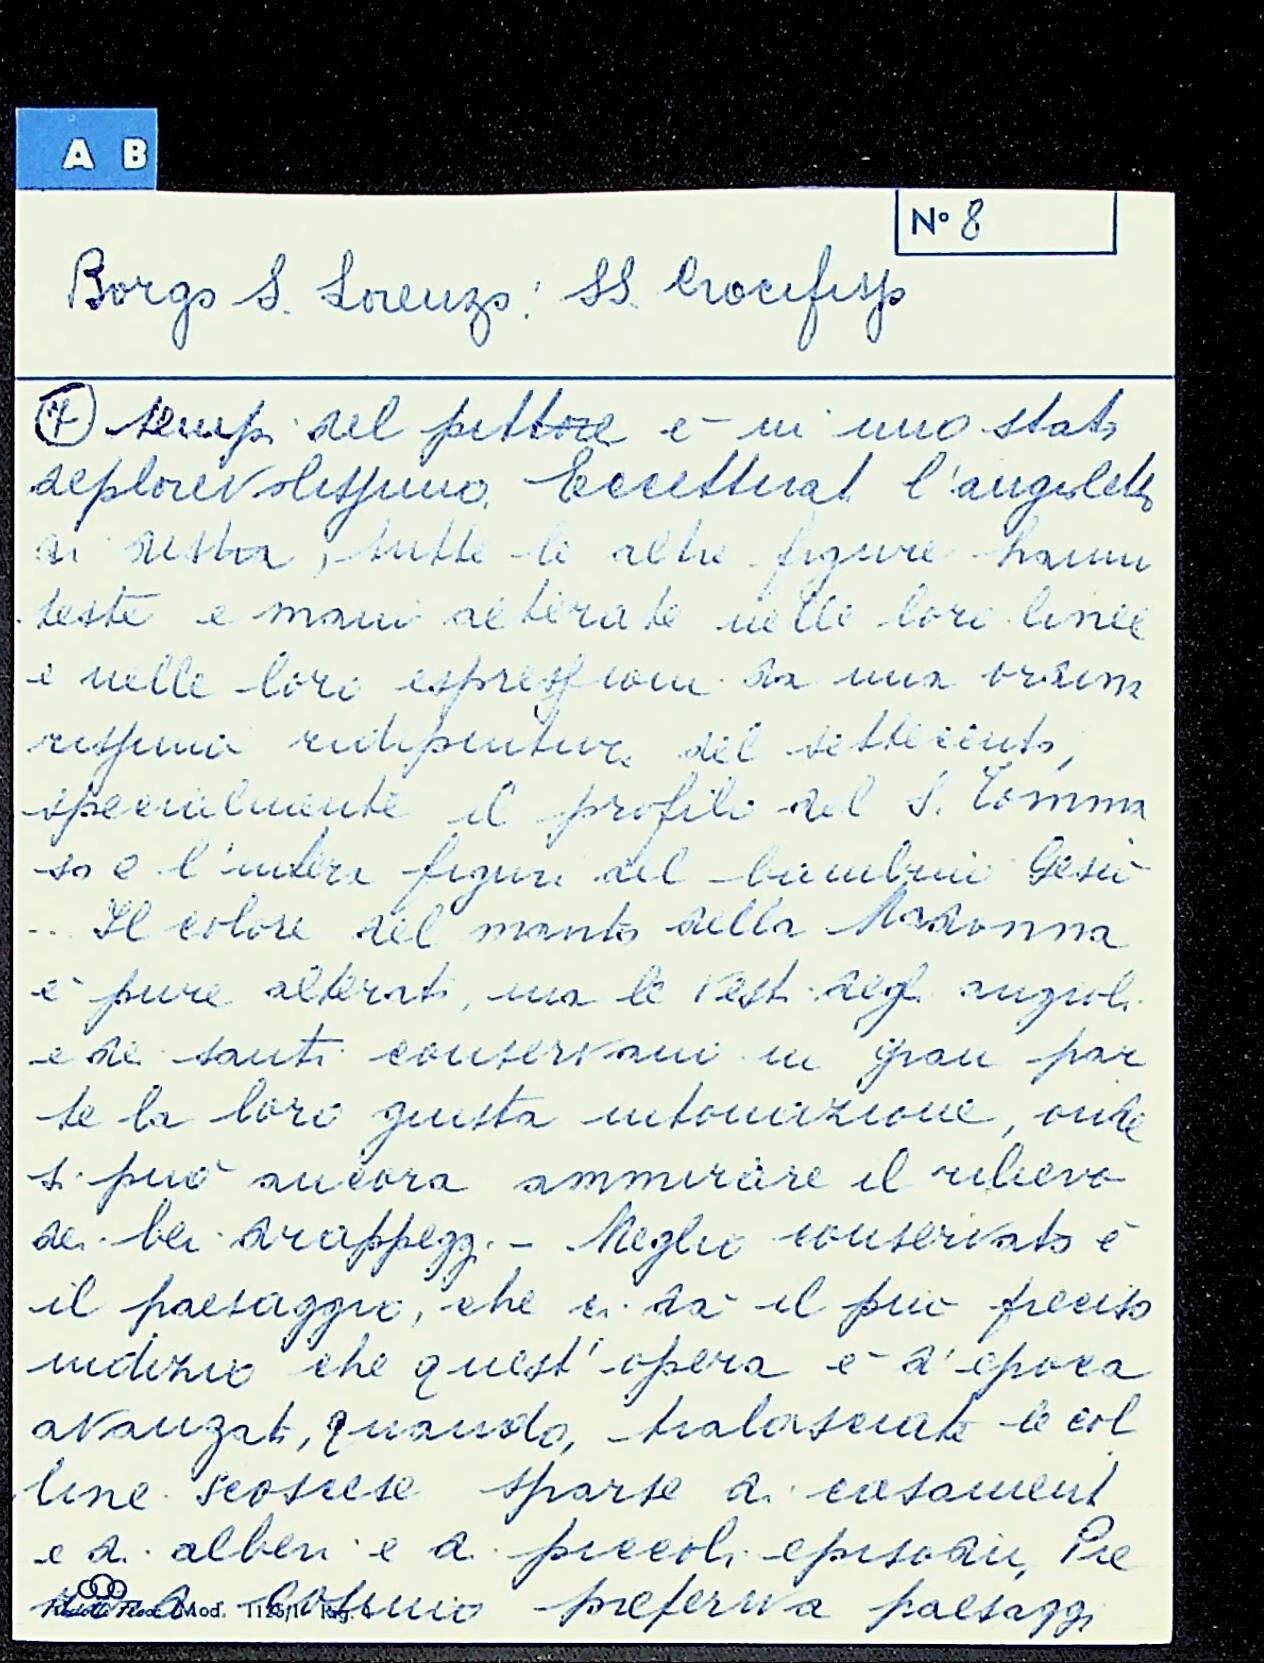 A B
Nº 8
Borgo S. Lorenzo: SS. Crocifisso
7 tempi del pittore è in uno stato
deplorevolissimo. Eccettuat l'angioletto
di destra, tutte le altre figure hanno
teste e mani alterate nelle loro linee
e nelle loro espressioni da una ordina
rissima ridipintura del settecento,
specialmente il profilo del S. Tomma
so e l'intera figura del bambino Gesù
... Il colore del manto della Madonna
è pure alterato, ma le vesti degli angioli
e dei santi conservano in gran par
te la loro giusta intonazione, onde
si può ancora ammirare il rilievo
dei bei drappeggi. - Meglio conservato è
il paesaggio, che ci dà il più preciso
indizio che quest'opera è d'epoca
avanzata, quando, tralasciate le col
line scoscese sparse di casamenti
e di alberi e di piccoli episodii, Pie
ro di Cosimo preferiva paesaggi
Mod. 1125/1